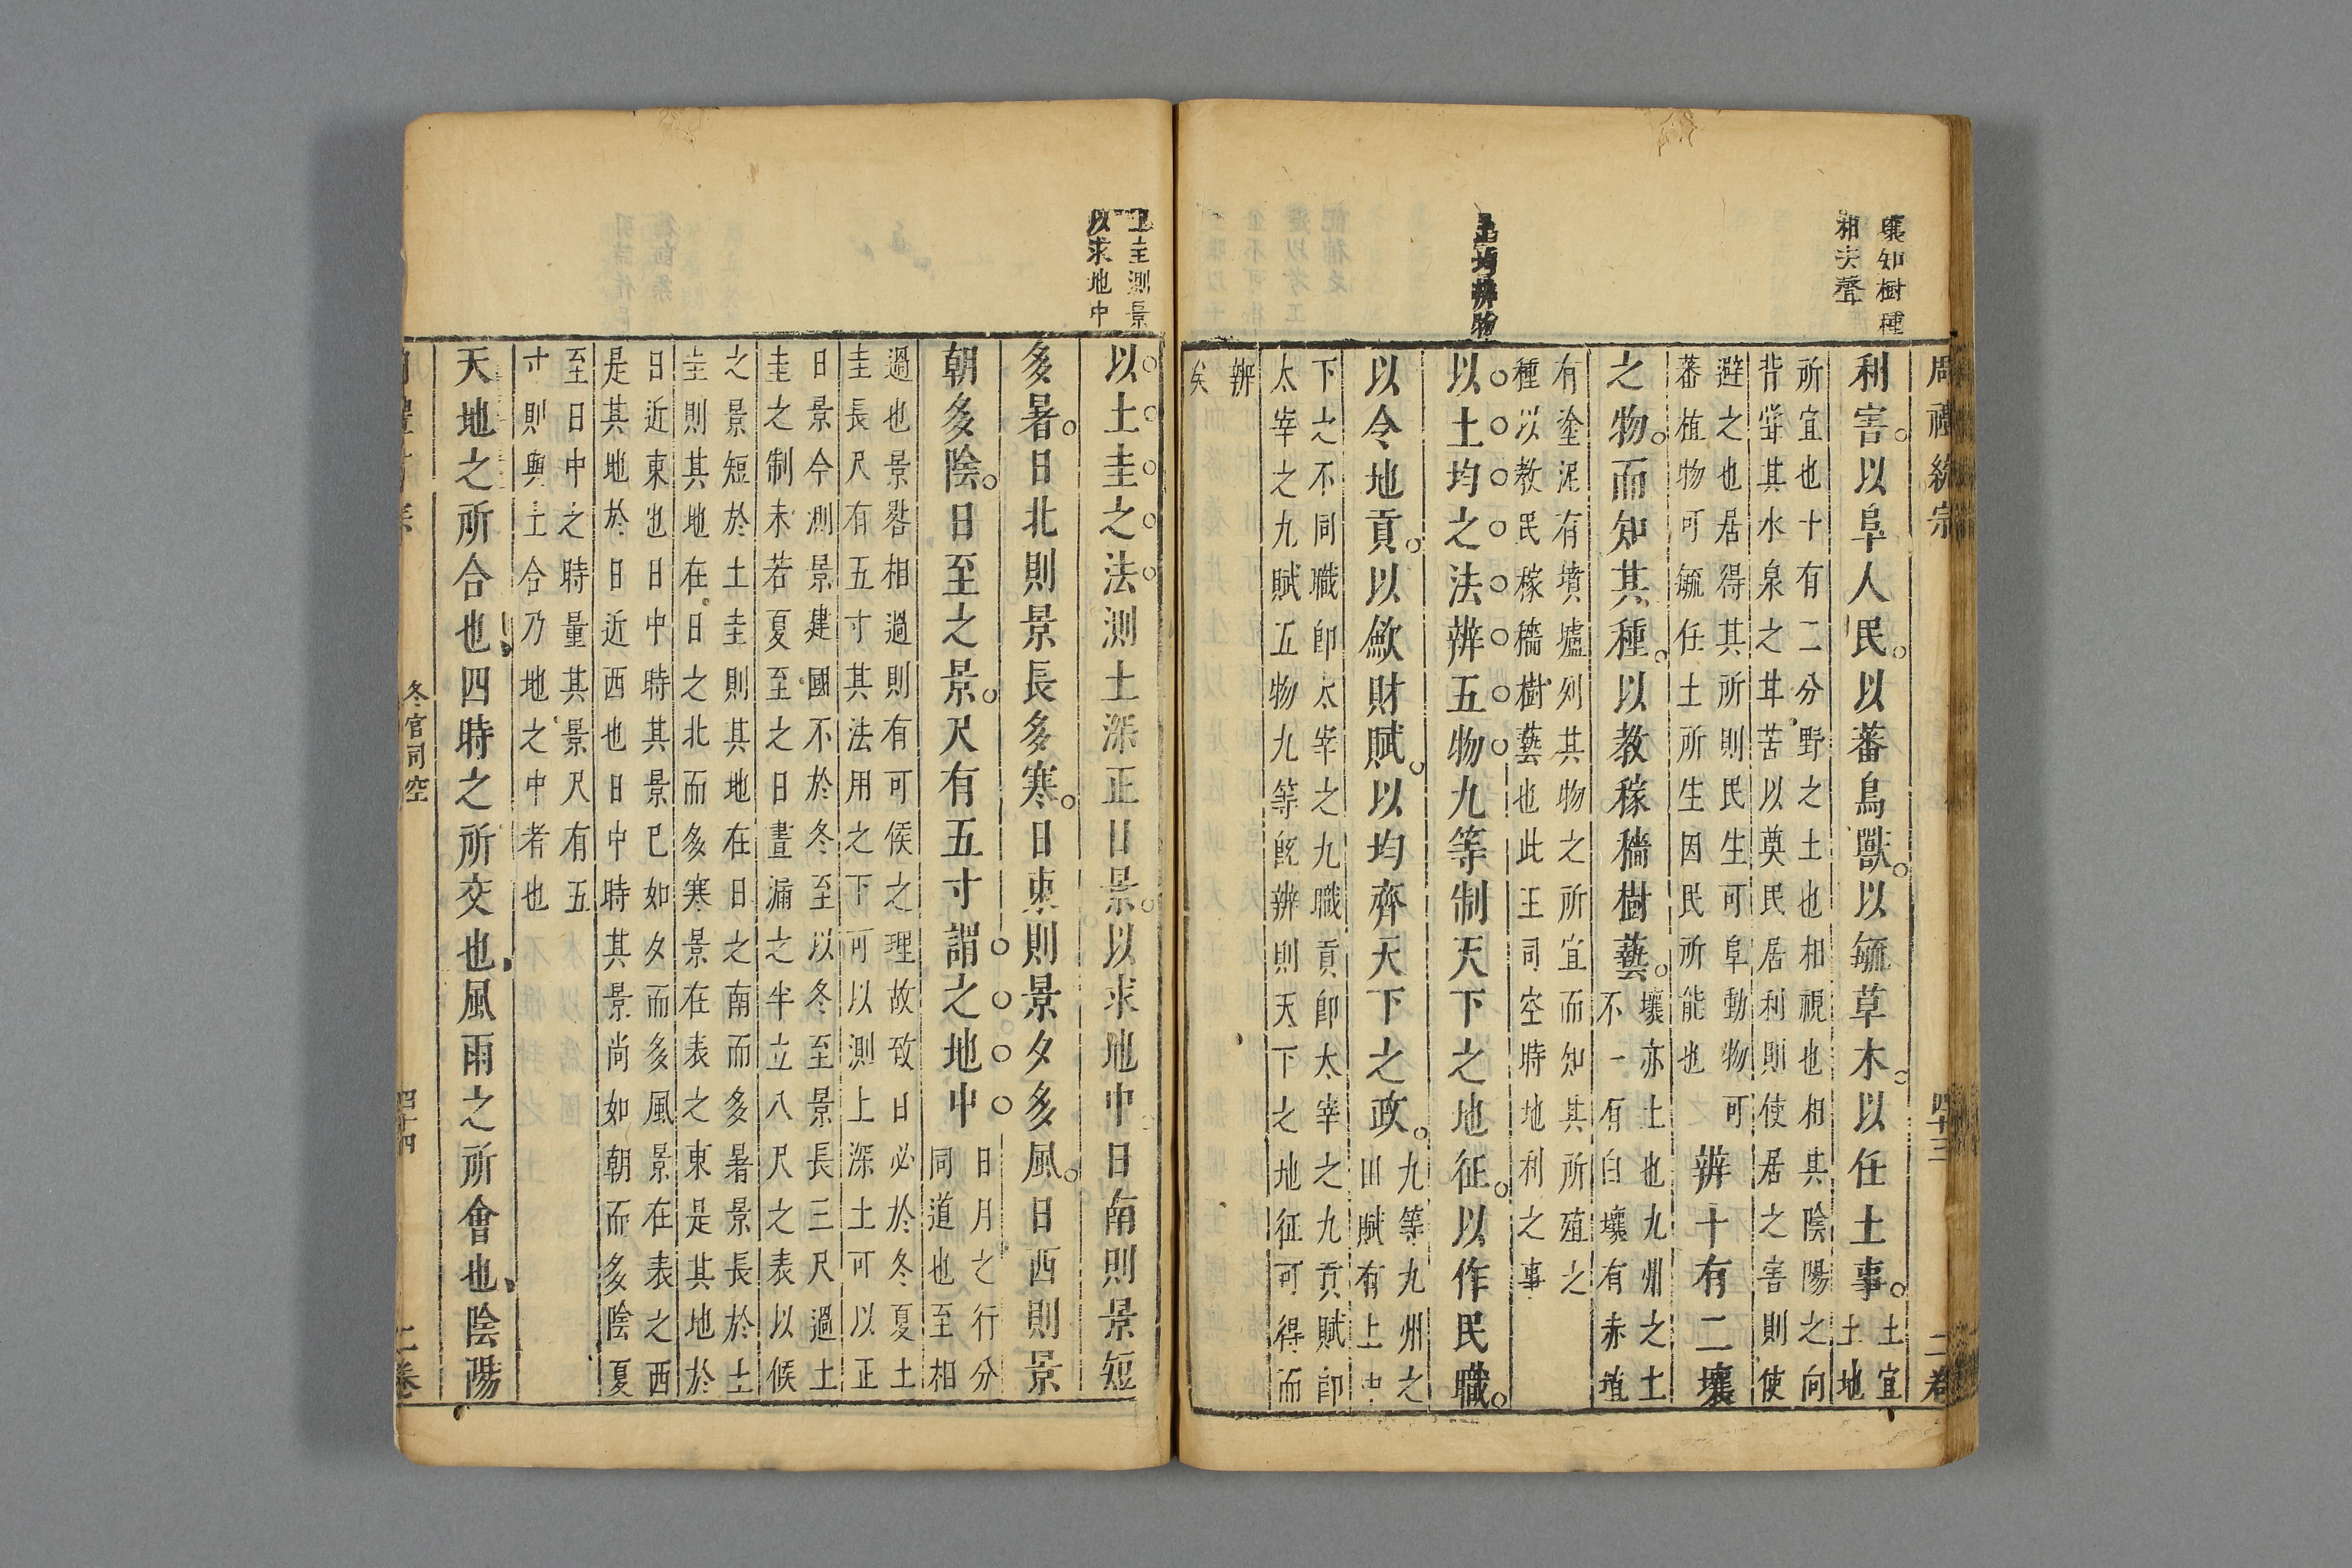 壤知樹種
相去聲
土均辨物
周禮緣宗
四十三
二卷
利害以阜人民以蕃鳥獸以毓草木以任土事
土宜
土地
所宜也十有二分野之土也相視也相其陰陽之向
背嘗其水泉之甘苦以奠民居利則使居之害則使
避之也居得其所則民生可阜動物可
蕃植物可毓任土所生因民所能也
辨十有二壤
之物而知其種以教稼穡樹藝
壤亦土也九州之土
不一有白壤有赤埴
有塗泥有墳壚列其物之所宜而知其所殖之
種以教民稼穡樹藝也此王司空時地利之事
以土均之法辨五物九等制天下之地征以作民職
以令地貢以斂財賦以均齊天下之政
九等九州之
田賦有上中
下之不同職即太宰之九職貢即太宰之九貢賦即
太宰之九賦五物九等旣辨則天下之地征可得而
辨
矣
土圭測景
以求地中
以土圭之法測土深正日景以求地中日南則景短
多暑日北則景長多寒日東則景夕多風日西則景
朝多陰日至之景尺有五寸謂之地中
日月之行分
同道也至相
過也景晷相過則有可候之理故攷日必於冬夏土
圭長尺有五寸其法用之下可以測上深土可以正
日景今測景建國不於冬至以冬至景長三尺過土
圭之制未若夏至之日晝漏之半立八尺之表以候
之景短於土圭則其地在日之南而多暑景長於土
圭則其地在日之北而多寒景在表之東是其地於
日近東也日中時其景已如夕而多風景在表之西
是其地於日近西也日中時其景尚如朝而多陰夏
至日中之時量其景尺有五
寸則與土合乃地之中者也
天地之所合也四時之所交也風雨之所會也陰陽
冬官司空
四十四
二卷